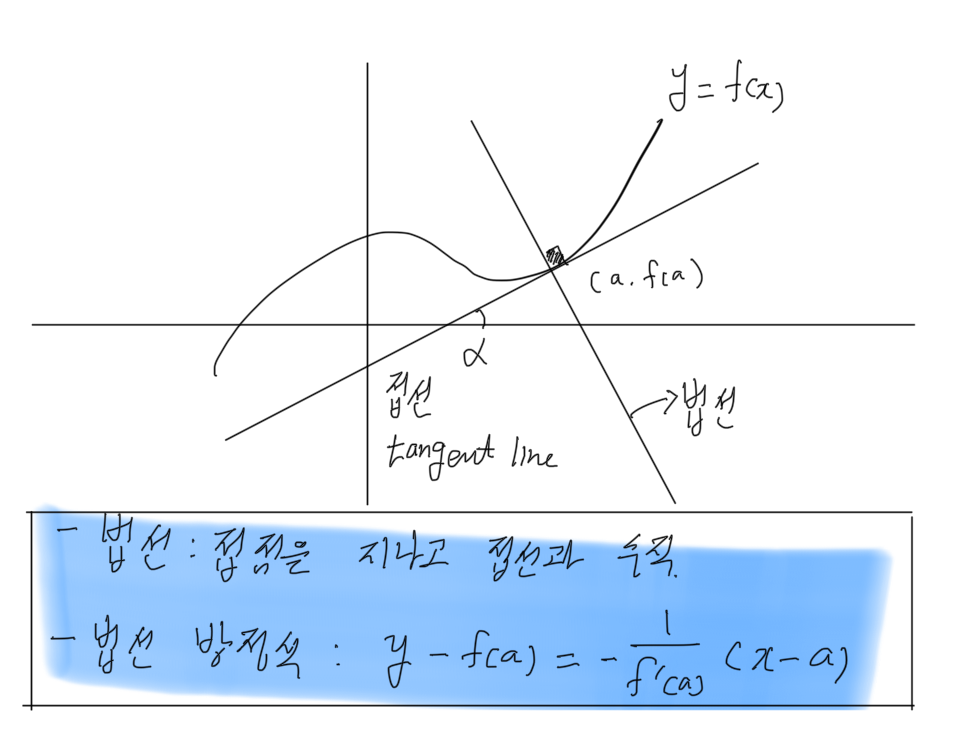 y = f(x)
(a. f(a)
α
접선
tangent line
법선
- 법선 : 접점을 지나고 접선과 수직.
- 법선 방정식 : y - f(a) = - 1/f'(a) (x-a)